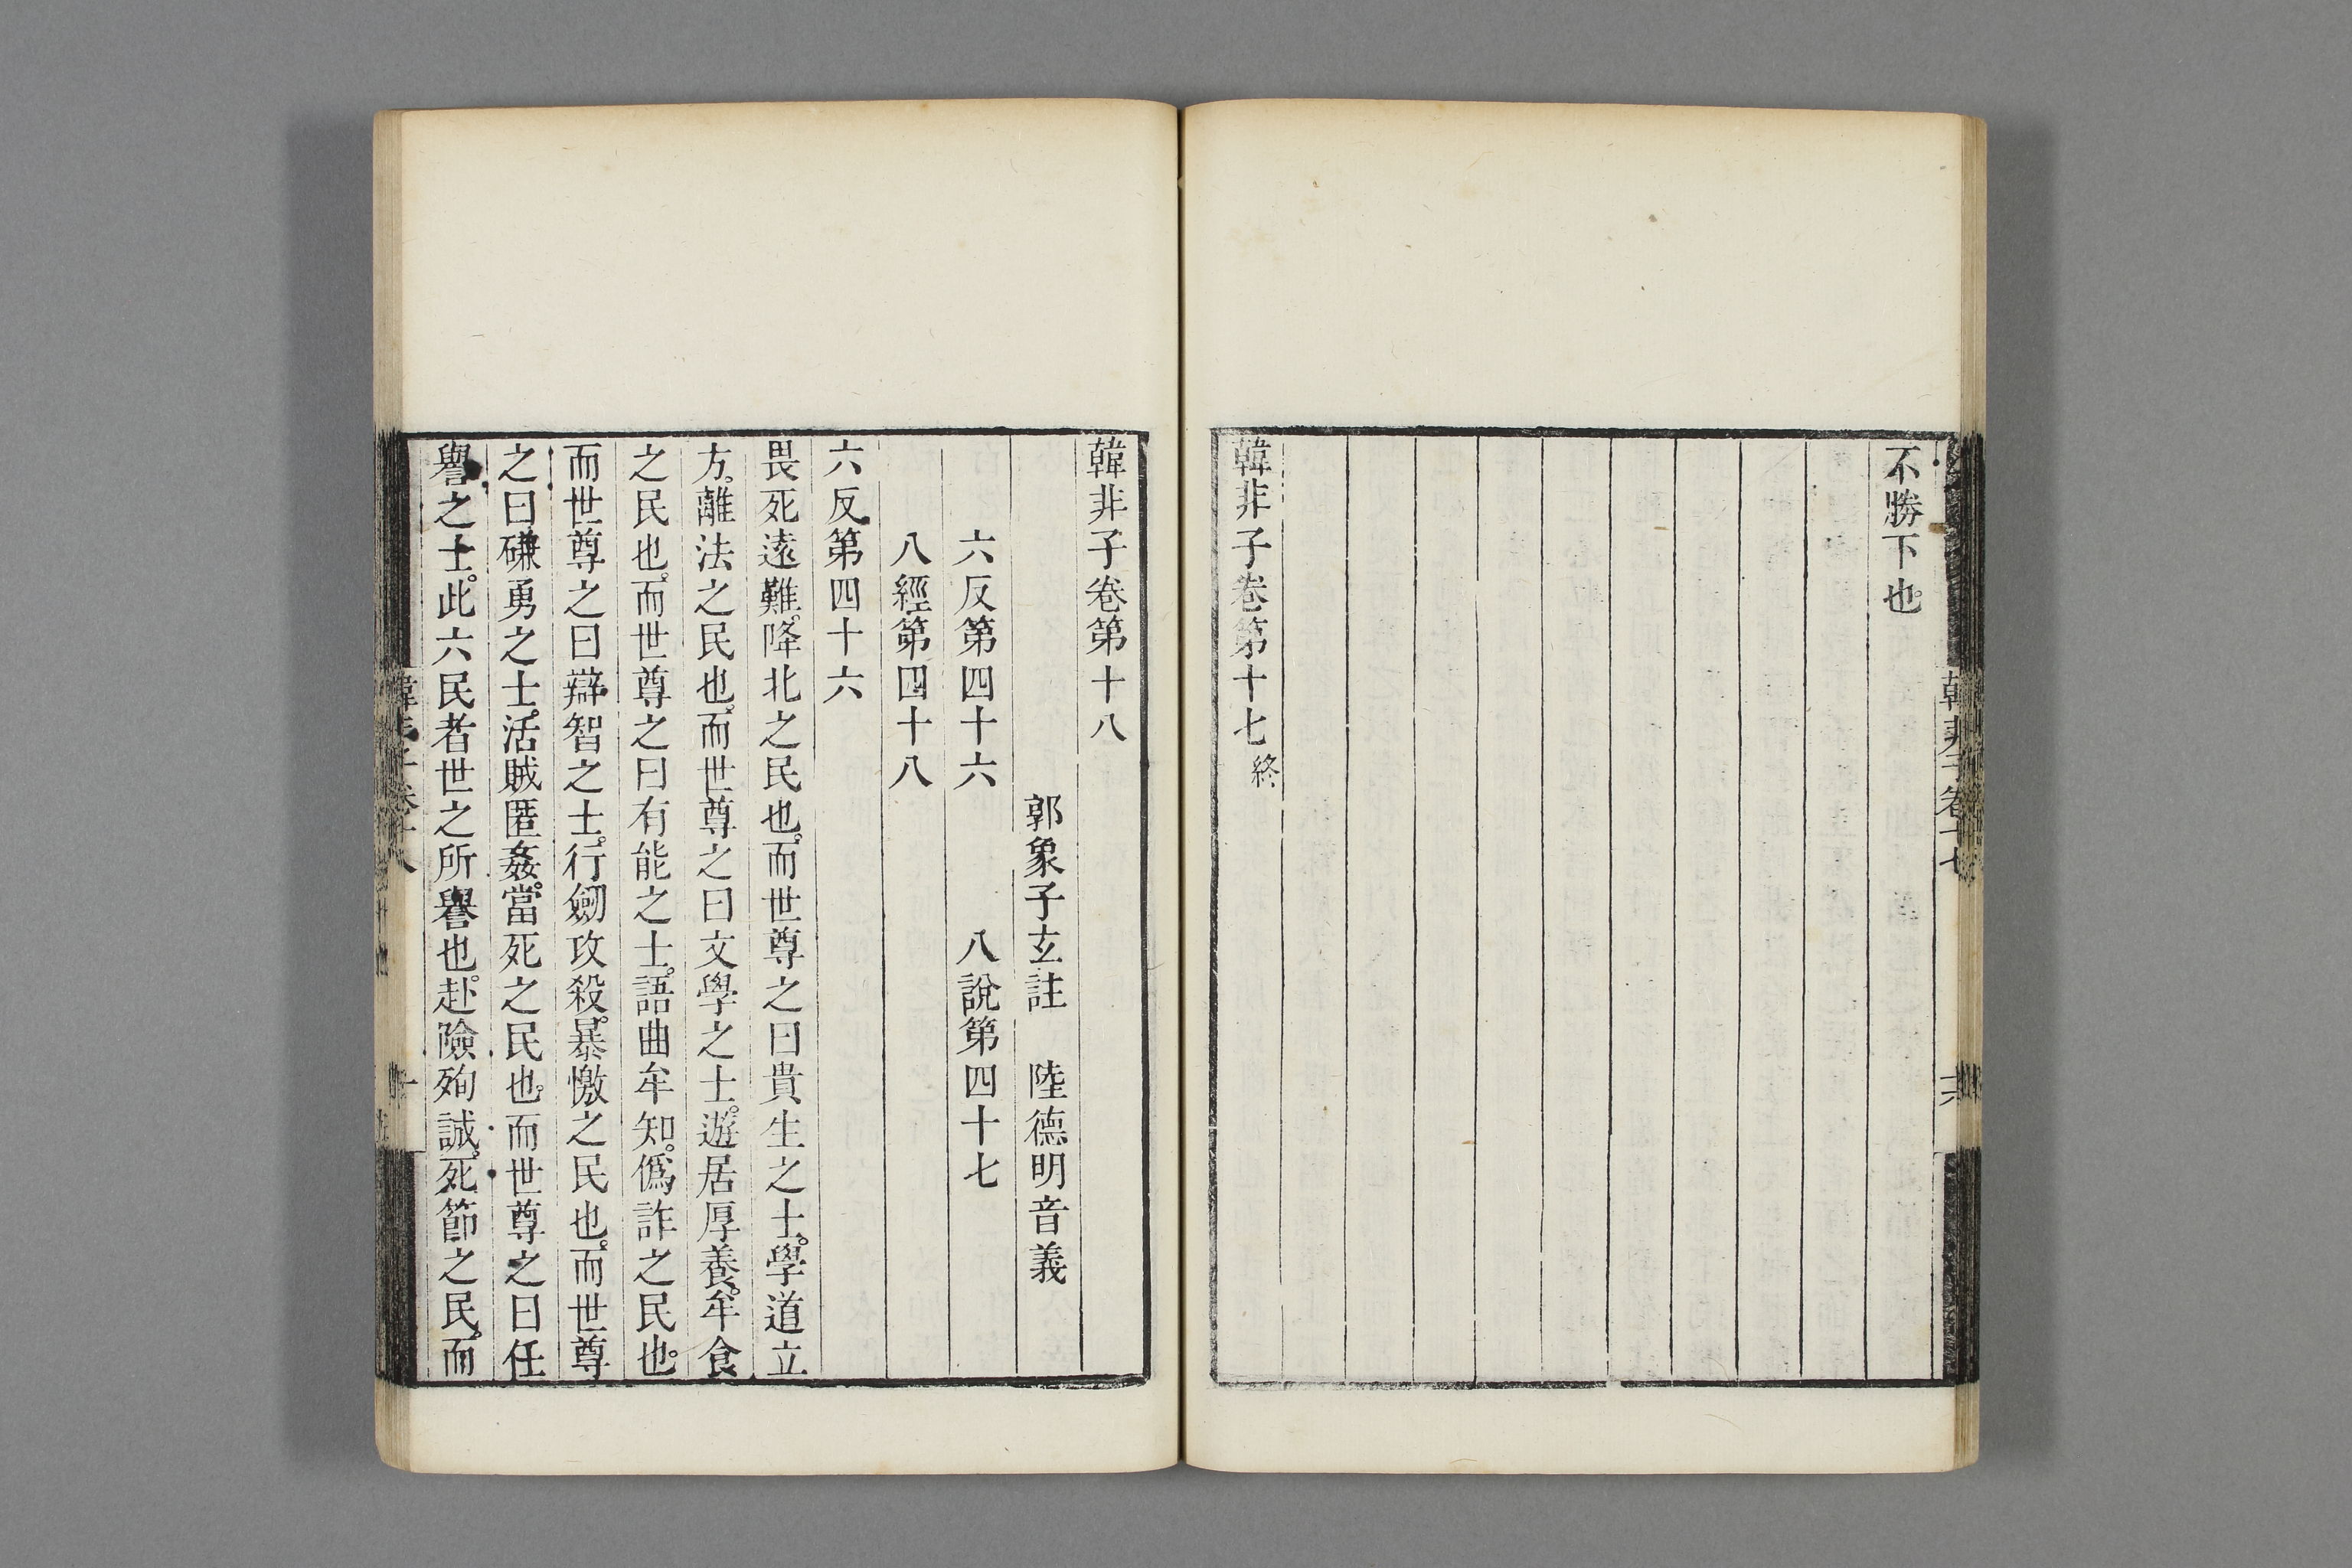 不勝下也。
韓非子卷第十七終
韓非子卷十七
六
韓非子卷第十八
郭象子玄註　陸德明音義
六反第四十六　八說第四十七
八經第四十八
六反第四十六
畏死遠難。降北之民也。而世尊之曰貴生之士。學道立
方。離法之民也。而世尊之曰文學之士。遊居厚養。牟食
之民也。而世尊之曰有能之士。語曲牟知。僞詐之民也。
而世尊之曰辯智之士。行劒攻殺。暴憿之民也。而世尊
之曰磏勇之士。活賊匿姦。當死之民也。而世尊之曰任
譽之士。此六民者世之所譽也。赴險殉誠。死節之民。而
韓非子卷十八
一